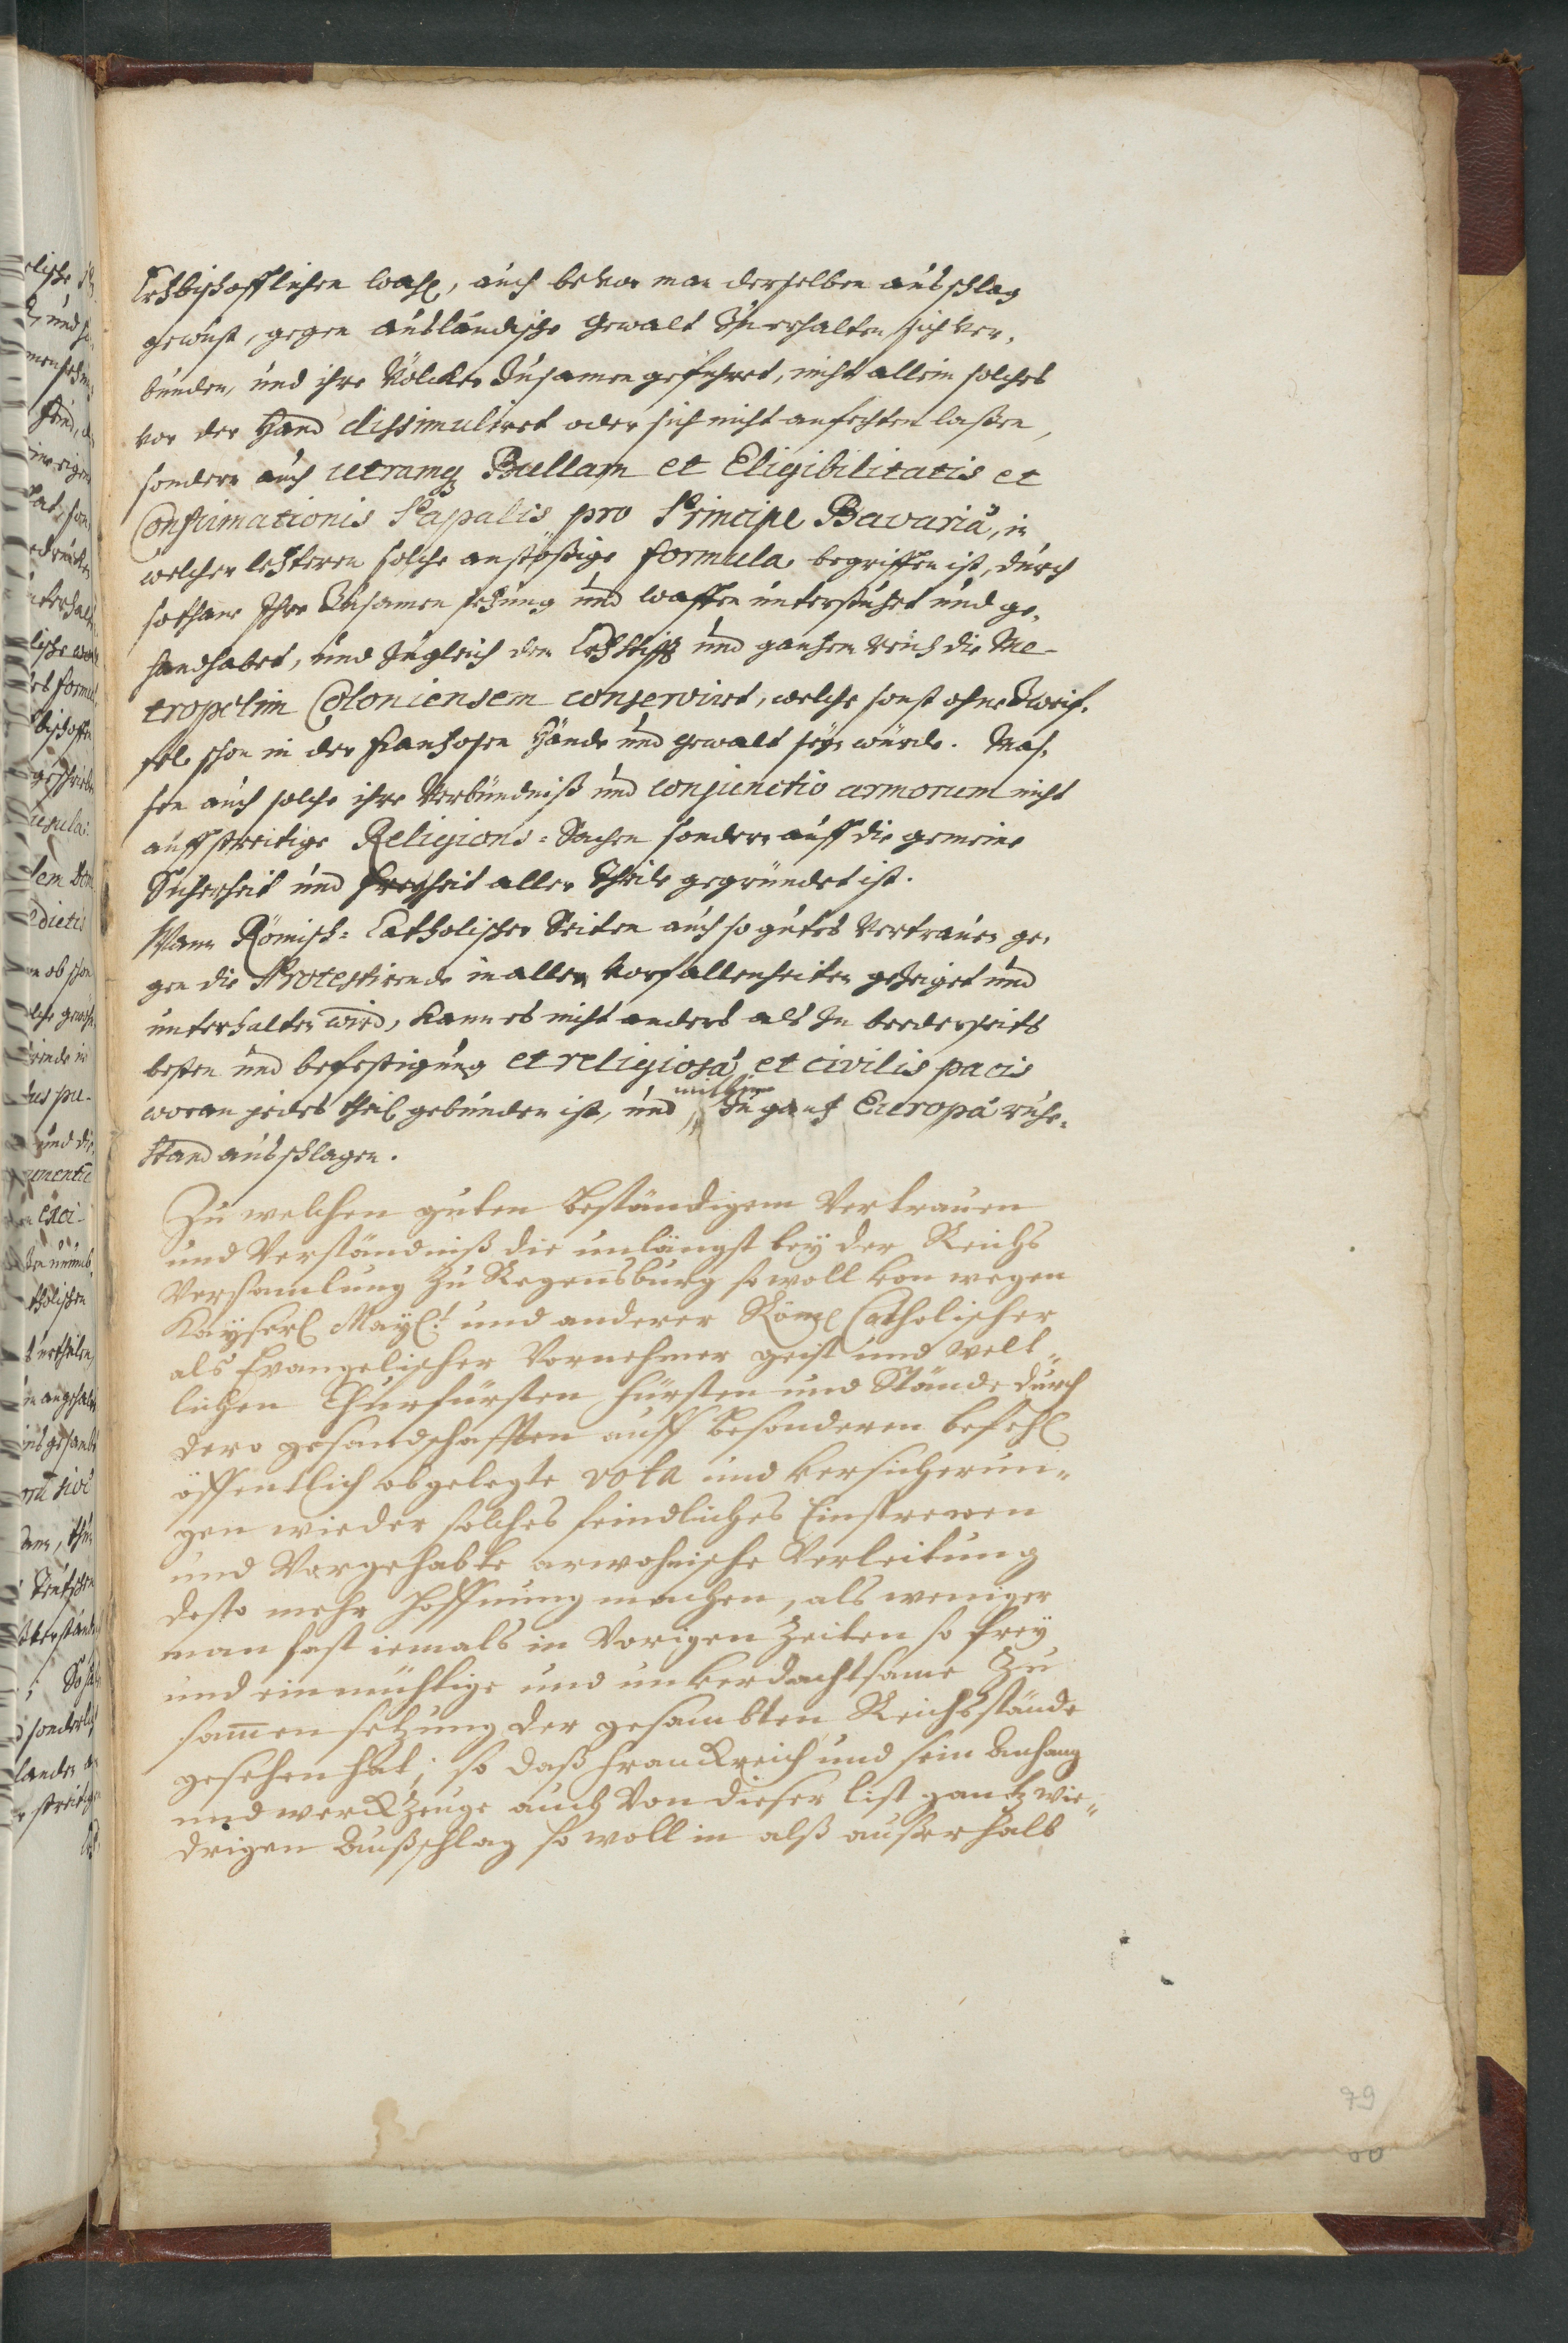 Ertzbischofflichen wahl, auch bevor man derselben ausschlag
gewust, gegen ausländische Gewalt zu erhalten sich ver-
bunden, und ihre Völcker zusamen geführet, nicht allein solches
vor der Hand dissimuliret oder sich nicht anfechten laßen,
sondern auch utramq Bullam et Eligibilitatis et
Confirmationis Papalis pro Principe Bavariä, in
welcher letzteren solche anstößige formula begriffen ist, durch
sothane Ihre Zusamen setzung und waffen unterstützet und ge-
handhabet, und zugleich dem Ertzstifft und gantzem reich die Me-
tropolim Coloniensem conservirt, welche sonst ohne Zweif-
fel schon in der Frantzosen Hände und gewalt seyn würde. Mas-
sen auch solche ihre Verbündniß und conjunctio armorum nicht
auff streitige Religions-Sachen sondern auff die gemeine
Sicherheit und Freyheit aller Theile gegründet ist.
Wann Römisch-Catholischer Seiten auch so gutes Vertrauen ge-
gen die Protestirende in allen vorfallenheiten gezeiget und
unterhalten wird, kann es nicht anders als zu beederseits
besten und befestigung et religiosä et civilis pacis
woran jedes theil gebunden ist, und mithin zu gantz Europä ruhe-
stand ausschlagen.
Zu welchen guten beständigem Vertrauen
und Verständniß die unlängst bey der Reichs
Versamlung zu Regensburg so woll von wegen
Kayserl Mayt: und anderer Röml Catholischer
als Evangelischer Vornehmer geist und welt-
lichen Churfürsten Fürsten und Stände durch
dero gesandschafften auff besonderen befehl
öffentlich abgelegte vota und versicherun-
gen wieder solches feindliches Einstrewen
und Vorgehabte arwohnische Verleitung
desto mehr hoffnung machen, als weniger
man fast iemals in Vorigen Zeiten so frey
und einmühtige und unverdachtsame Zu
samen setzung der gesambten Reichsstände
gesehen hat, so daß Franckreich und sein Anhang
und werckzeuge auch von dieser list gantz wie-
drigen Außschlag so woll in alß außerhalb
79